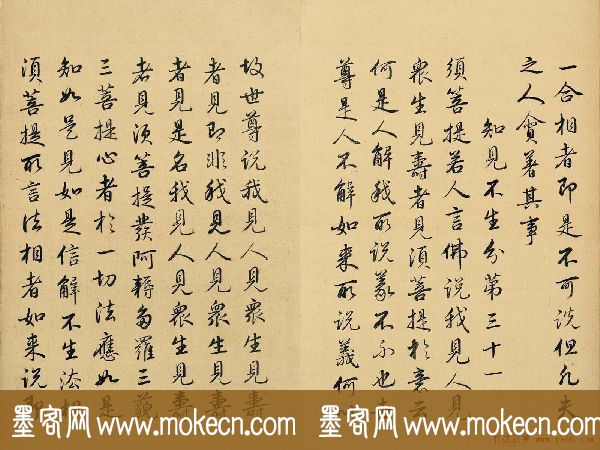 一合相者即是不可説但凡夫
之人貪著其事
知見不生分第三十一
須菩提若人言佛説我見人見
衆生見壽者見須菩提於意云
何是人解我所説義不不也世
尊是人不解如来所説義何
故世尊説我見人見衆生見壽
者見即非我見人見衆生見壽
者見是名我見人見衆生見壽
者見須菩提發阿耨多羅三藐
三菩提心者於一切法應如是
知如是見如是信解不生法相
須菩提所言法相者如来説即
墨客网 www.mokecn.com 墨客网 www.mokecn.com